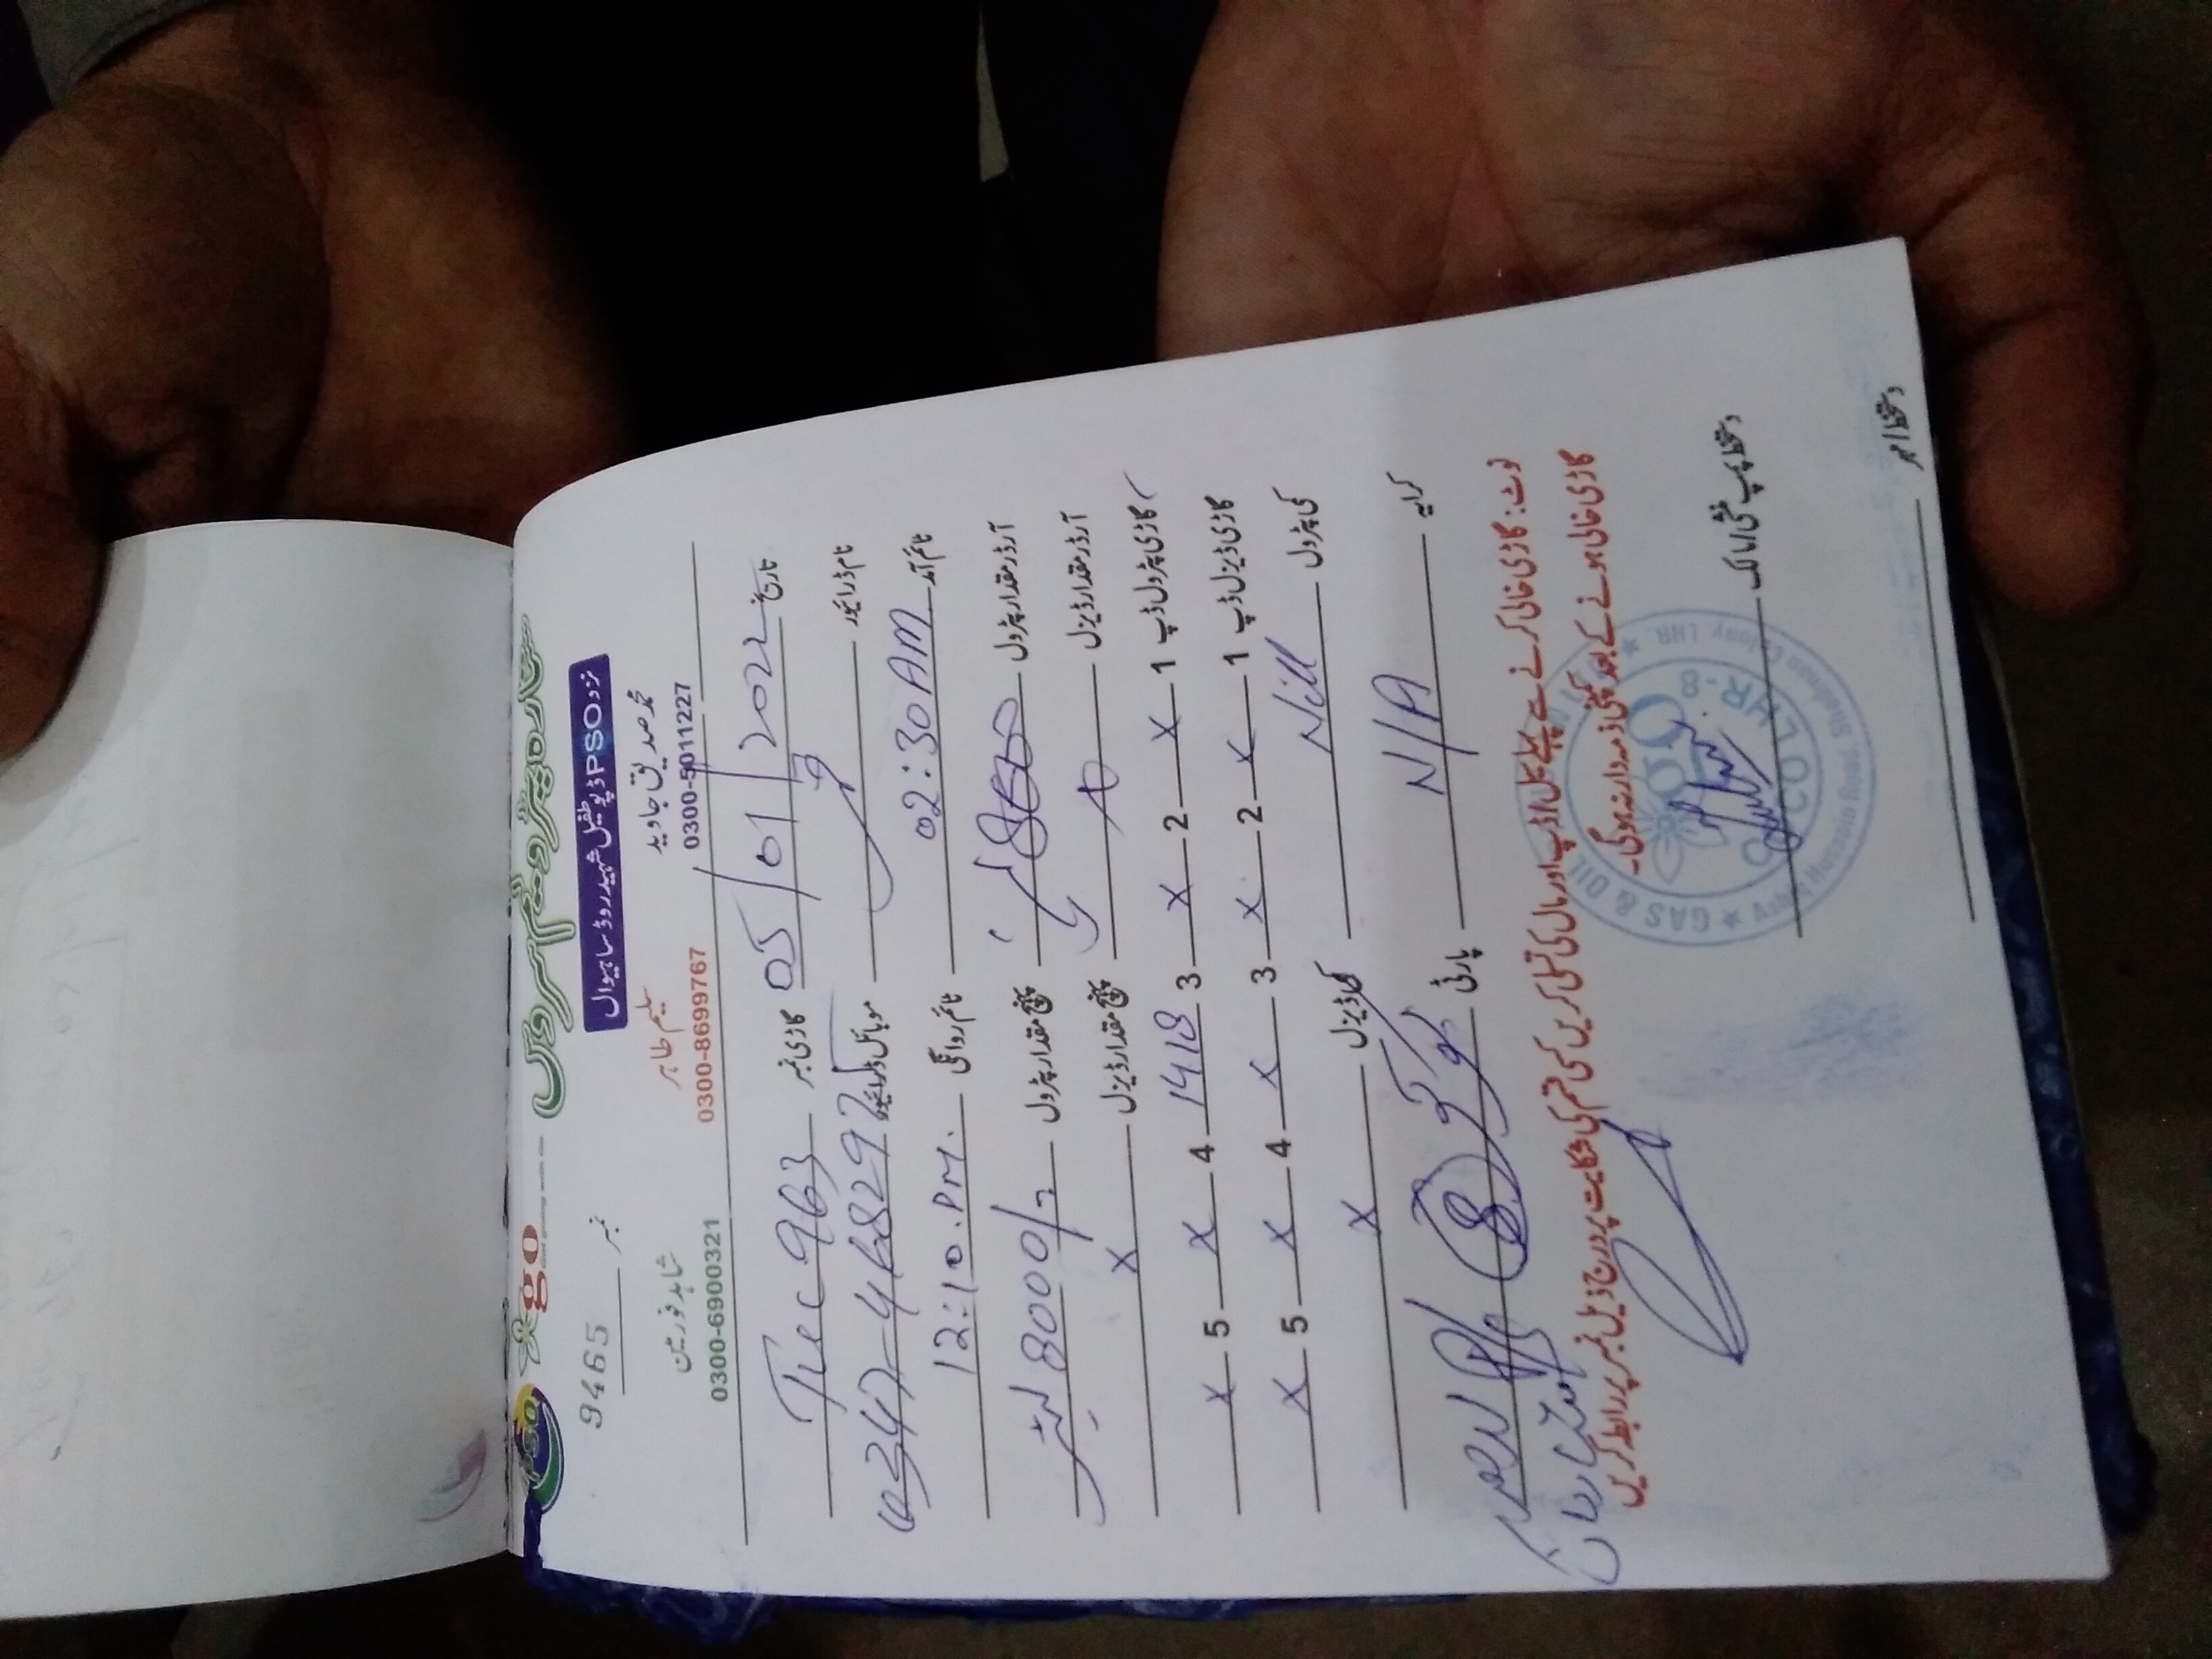 PSO go Get going with Go ستارہ پٹرولیم سروس
نزد PSO ڈپو طفیل شہید روڈ ساہیوال
نمبر 9465
محمد صدیق جاوید سلیم طاہر شاہد فورمین
0300-5011227 0300-8699767 0300-6900321
تاریخ 05/01/2022 گاڑی نمبر 963
نام ڈرائیور موبائل ڈرائیور
ٹائم آمد 02:30 AM ٹائم روانگی 12:10.PM.
آرڈر مقدار پٹرول 8000 پہنچ مقدار پٹرول 8000/- لیٹر
آرڈر مقدار ڈیزل x پہنچ مقدار ڈیزل x
گاڑی پٹرول ڈپ 1 x 2 x 3 1418 4 x 5 x
گاڑی ڈیزل ڈپ 1 x 2 x 3 x 4 x 5 x
کمی پٹرول Nill کمی ڈیزل x
کرایہ N/A پارٹی گو کو 8 لاہور P/S
نوٹ: گاڑی خالی کرنے سے پہلے سیل/ڈپ اور مال کی تسلی کریں کسی قسم کی شکایت پر درج ذیل نمبر پر رابطہ کریں
گاڑی خالی ہونے کے بعد کمپنی ذمہ دار نہ ہوگی۔
GAS & OIL
go
CO LHR-8
Hussain Road, Shadman Colony LHR.
دستخط پمپ منشی/مالک
دستخط/مہر